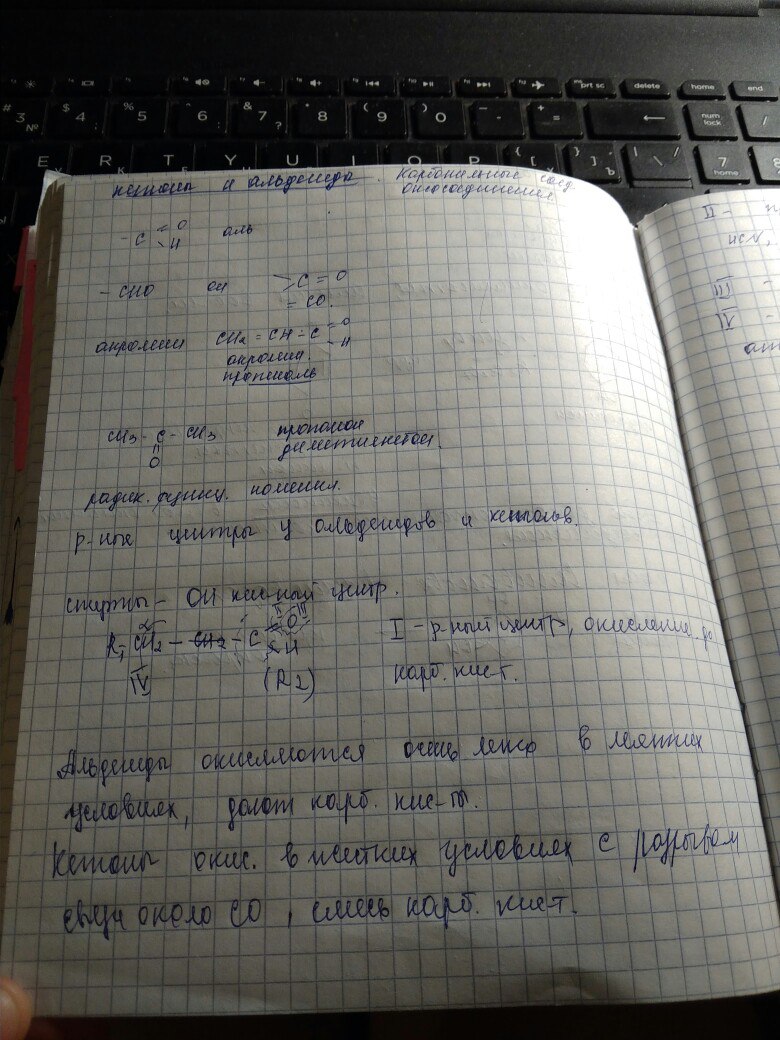 кетоны и альдегиды. Карбонильные соед.
оксосоединения
- C = O
\ H
аль
- CHO он > C = O
= CO.
акролеин CH2 = CH - C = O
- H
акролеин.
пропеналь
CH3 - C - CH3 пропанон
O диметилкетон.
радик. функц. номенкл.
р-ные центры у альдегидов и кетонов.
спирты - OH кис-ный центр.
R1 CH2 - CH2 - C = O I - р-ный центр, окисление до
α II III
H
IV (R2) карб. кис-т.
Альдегиды окисляются очень легко в мягких
условиях, дают карб. кис-ты.
Кетоны окис. в жестких условиях с разрывом
связи около CO, смесь карб. кис-т.
II -
III -
IV -
# 3 №
$ 4
% 5
^ 6 :
& 7
* 8
( 9
) 0
- -
+ =
←
prt sc
delete
home
end
num lock
E R T Y U I O P
7 home